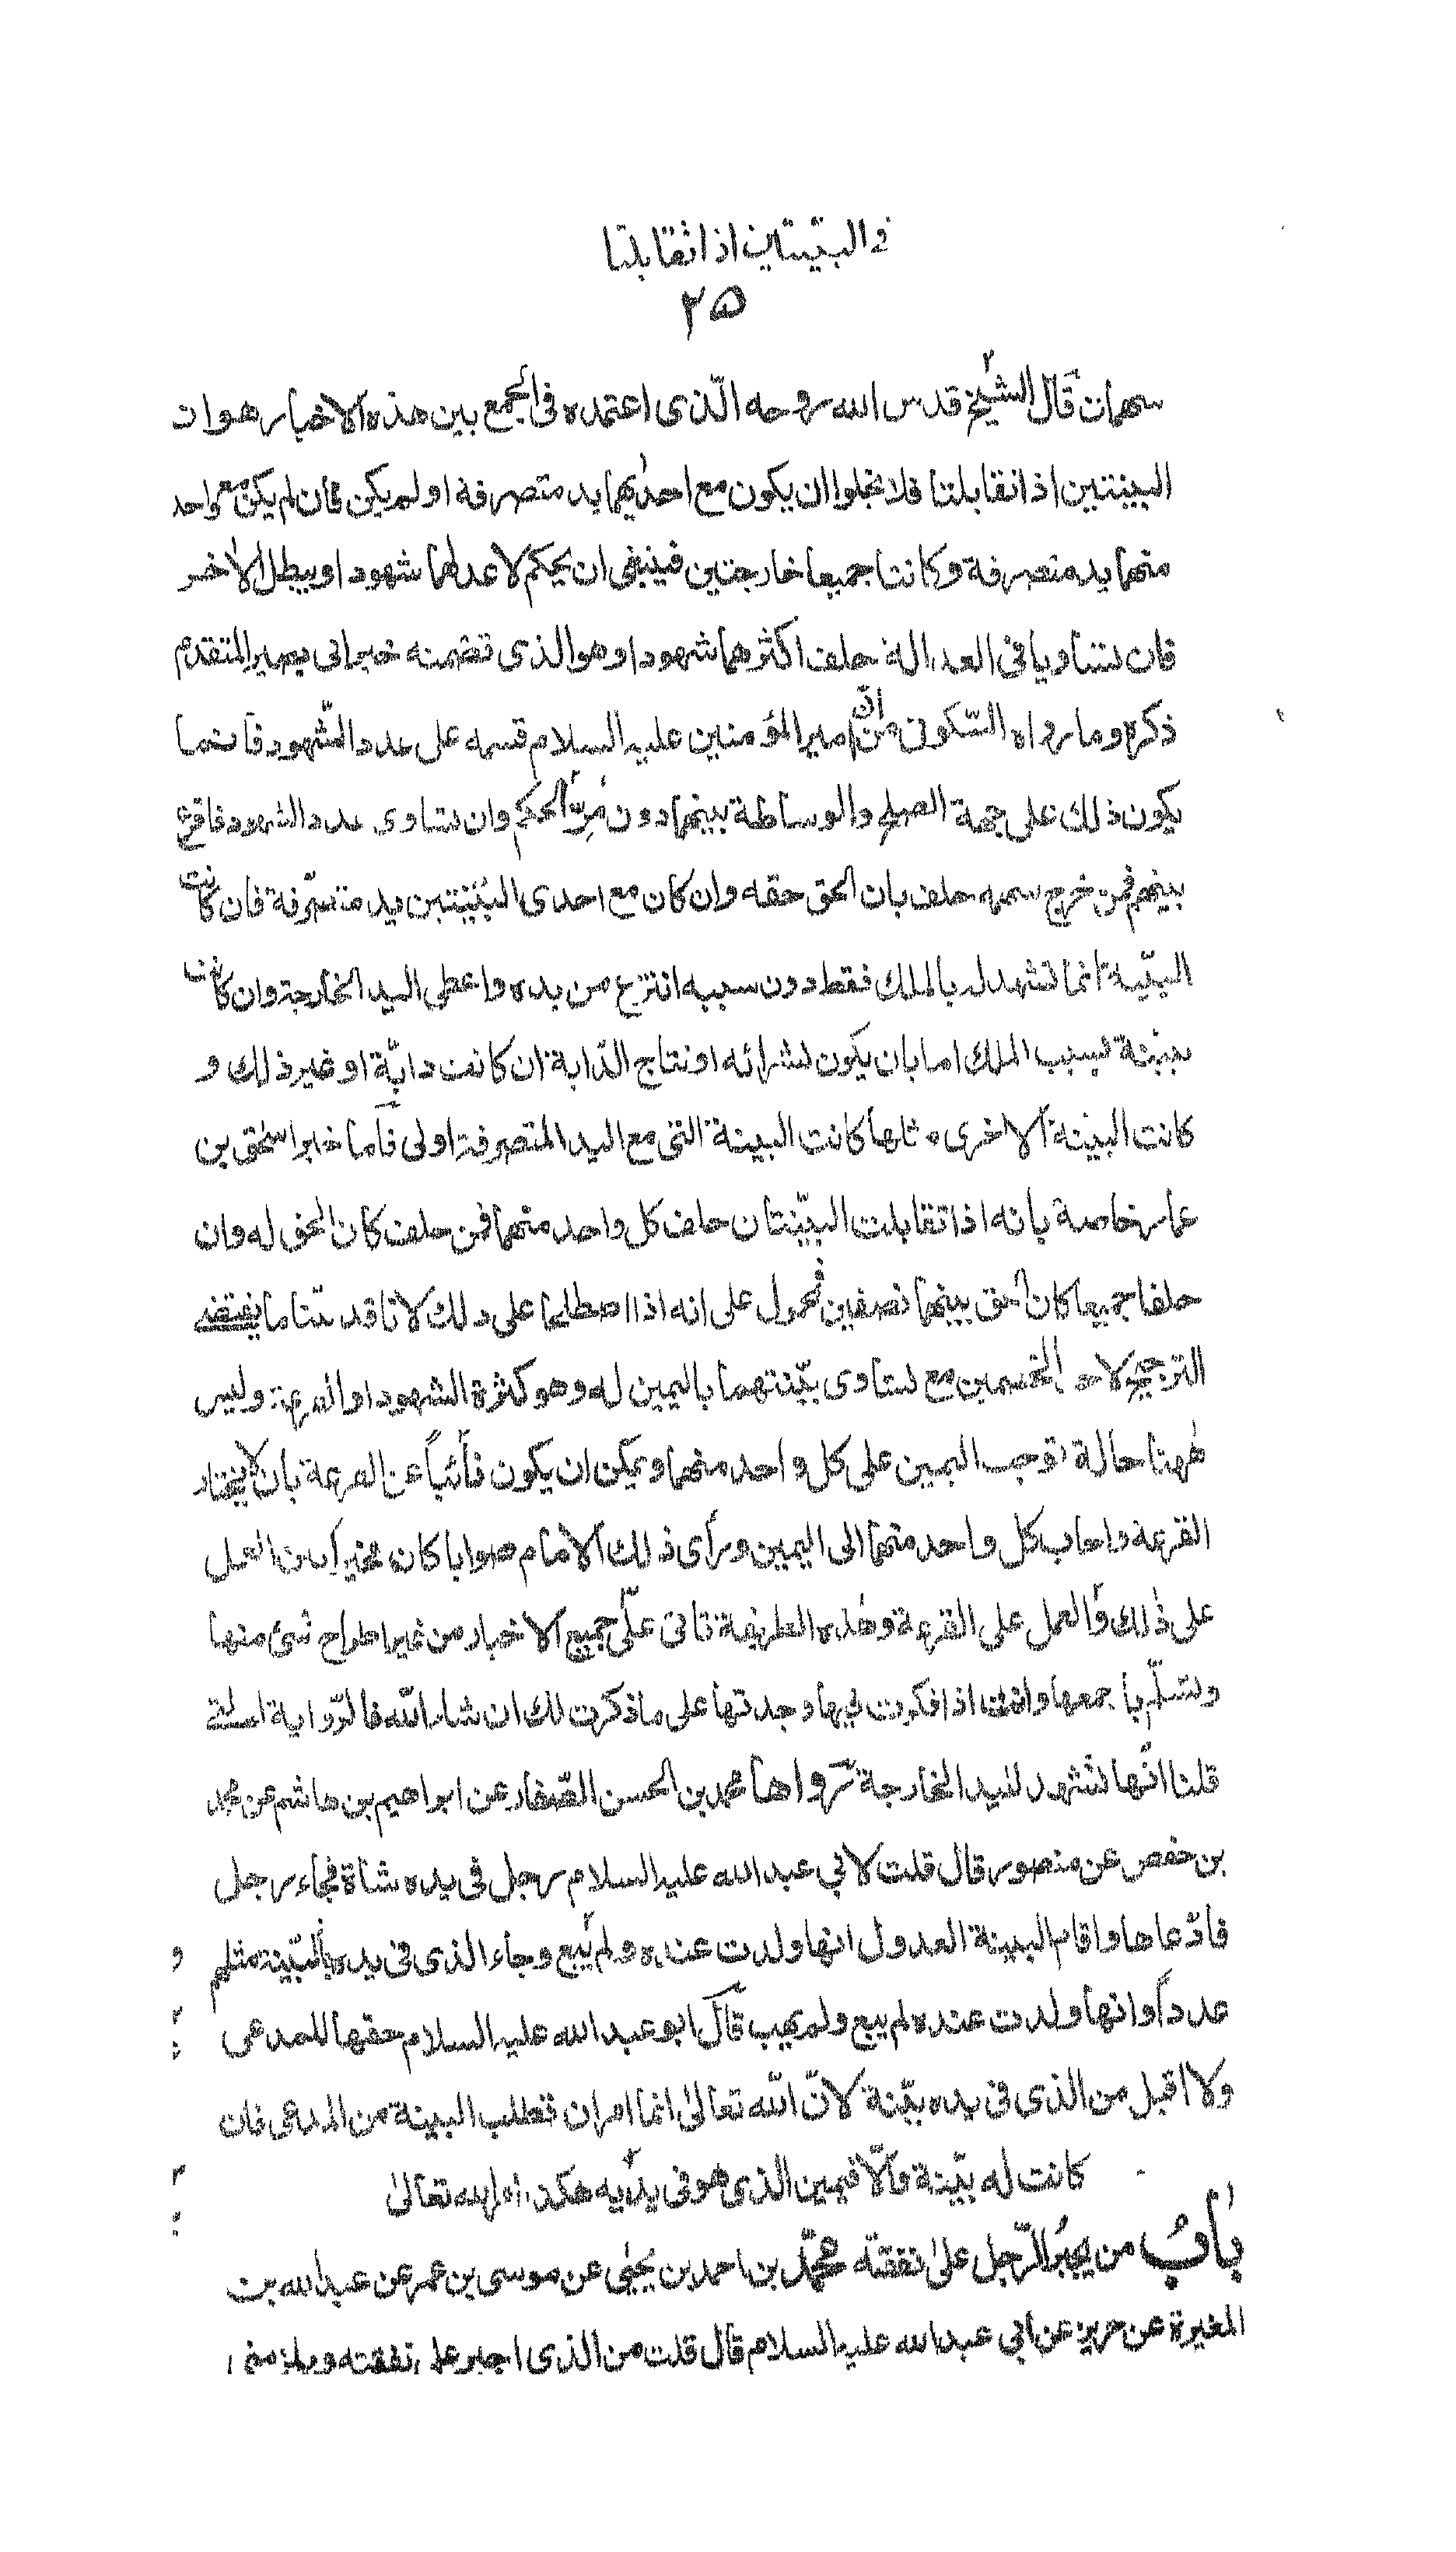 في البيّنتين اذا تقابلتا
٢٥
سهمان قال الشيخ قدس الله روحه الّذى اعتمده فى الجمع بين هذه الاخبار هو ان
البينتين اذا تقابلتا فلا تخلوا ان يكون مع احدٰيهما يد متصرفة او لم يكن فان لم يكن مع واحد
منهما يد متصرفة وكانتا جميعا خارجتين فينبغى ان يحكم لاعدلهما شهودا ويبطل الاخر
فان تساويا فى العدالة حلف اكثرهما شهودا وهو الذى تضمنه خبر ابى بصير المتقدم
ذكره وما رواه السّكونى من انّ امير المؤمنين عليه السلام قسمه على عدد الشّهود فانما
يكون ذلك على جهة الصلح والوساطة بينهما دون مُرّ الحكم وان تساوى عدد الشهود فاقرع
بينهم فمن خرج سهمه حلف بان الحق حقه وان كان مع احدى البيّنتين يد متصرّفة فان كانت
البيّنة انما تشهد له بالملك فقط دون سببه انتزع من يده واعطى اليد الخارجة وان كانت
بينة بسبب الملك اما بان يكون بشرائه او نتاج الدّابة ان كانت دابّة او غير ذلك و
كانت البينة الاخرى مثلها كانت البينة التى مع اليد المتصرفة اولى فأما خبر اسحٰق بن
عمار خاصة بانه اذا تقابلت البيّنتان حلف كل واحد منهما فمن حلف كان الحق له وان
حلفا جميعا كان الحق بينهما نصفين فمحمول على انه اذا اصطلحا على ذلك لانا قد بيّنا ما يقتضى
الترجيح لاحد الخصمين مع تساوى بيّنتهما باليمين له وهو كثرة الشهود او القرعة وليس
هٰهنا حالة توجب اليمين على كل واحد منهما ويمكن ان يكون نائباً عن القرعة بان لا يختار
القرعة واجاب كل واحد منهما الى اليمين ورأى ذلك الامام صوابا كان مخيرا بين العمل
على ذٰلك والعمل على القرعة وهٰذه الطريقة تاتى على جميع الاخبار من غير اطراح شئ منها
وتسلّم باجمعها وانت اذا فكرت فيها وجدتها على ما ذكرت لك ان شاء الله فالرّواية التى
قلنا انّها تشهد لليد الخارجة رواها محمد بن الحسن الصّفار عن ابراهيم بن هاشم عن محمد
بن حفص عن منصور قال قلت لابي عبد الله عليه السلام رجل فى يده شاة فجاء رجل
فادّعاها واقام البينة العدول انها ولدت عنده ولم يبع وجاء الذى فى يده بالبيّنة مثلهم
عدداً وانها ولدت عنده لم يبع ولم يهب قال ابو عبد الله عليه السلام حقها للمدعى
ولا اقبل من الذى فى يده بيّنة لانّ الله تعالىٰ انما امر ان تطلب البينة من المدعى فان
كانت له بيّنة والّا فيمين الذى هو فى يديه هكذا امر الله تعالىٰ
بابُ من يجبر الرّجل علىٰ نفقته محمّد بن احمد بن يحيٰى عن موسى بن عمر عن عبد الله بن
المغيرة عن حريز عن ابي عبد الله عليه السلام قال قلت من الذى اجبر على نفقته